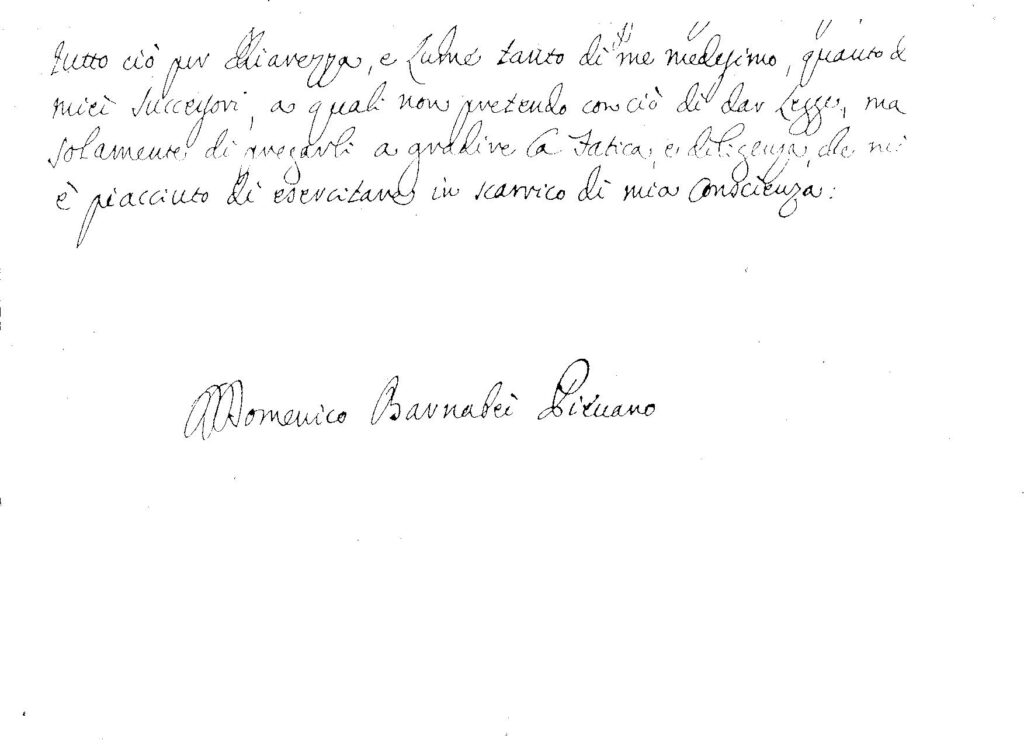 tutto ciò per Chiarezza, e Lume tanto di me medesimo, quanto de
miei Successori, a quali non pretendo con ciò di dar Legge, ma
solamente di pregarli a gradire la Fatica, e diligenza, che mi
è piacciuto di esercitare in scarrico di mia Conscienza:
Domenico Barnabei Pievano